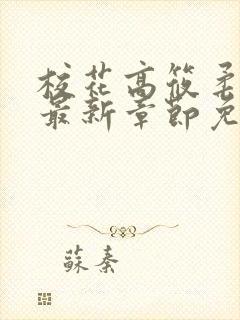 校花高筱柔
最新章节免
蘇秦